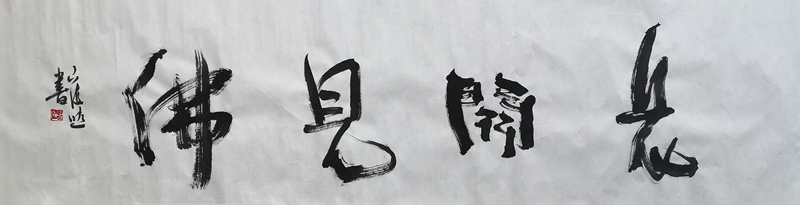 花開見佛
書